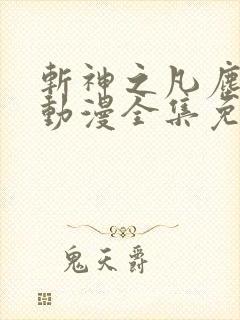 斬神之凡塵
動漫全集免
鬼天爵